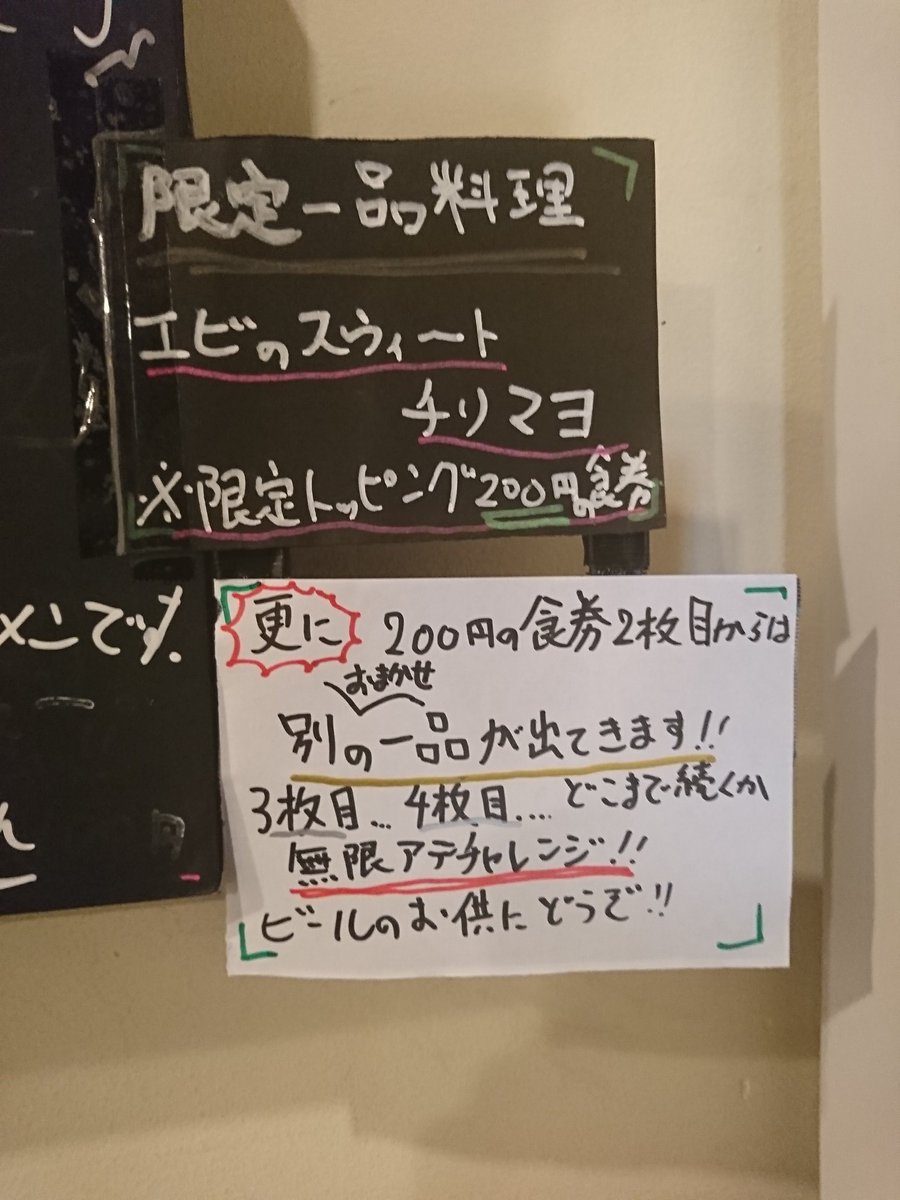 限定一品料理
エビのスウィート
チリマヨ
※限定トッピング200円の食券
メンです。
更に 200円の食券2枚目からは
おまかせ
別の一品が出てきます!!
3枚目…4枚目…. どこまで続くか
無限アテチャレンジ!!
ビールのお供にどうぞ!!